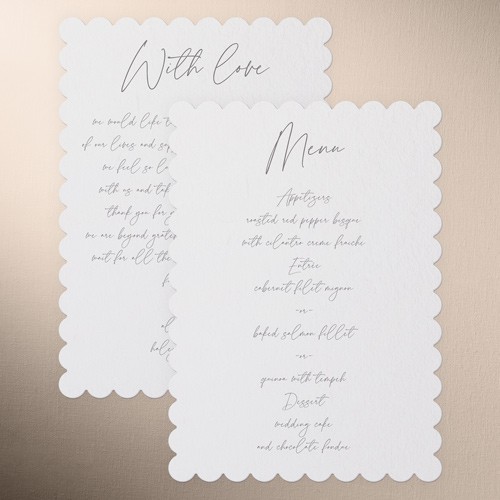 With love
me would like t
of our lives and sp
we feel so l
with us and tak
thank you for
we are beyond grat
wait for all the
h
al
hal
Menu
Appetizers
roasted red pepper bisque
with cilantro creme fraiche
Entrée
cabernet filet mignon
-or-
baked salmon fillet
-or-
quinoa with tempeh
Dessert
wedding cake
and chocolate fondue